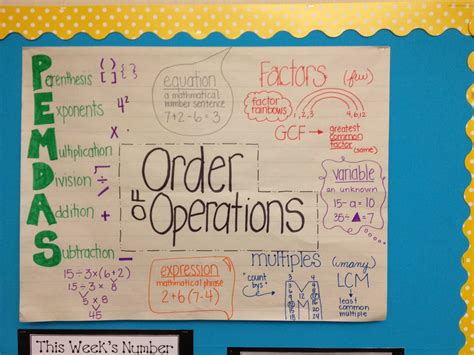 Parenthesis ( ) { }
Exponents 4²
Multiplication ×
Division ÷
Addition +
Subtraction -
15÷3×(6+2)
15÷3×8
5×8
equation
a mathematical
number sentence
7+2-6=3
Factors (few)
factor
rainbows
1,2,3 4,6,12
GCF → greatest
common
factor
(same)
Order
OF
Operations
variable
an unknown
15-a=10
35÷▲=7
expression
mathematical phrase
2+6(7-4)
multiples (many)
"count
bys"
3 4
LCM
↓
least
common
multiple
This Week's Number